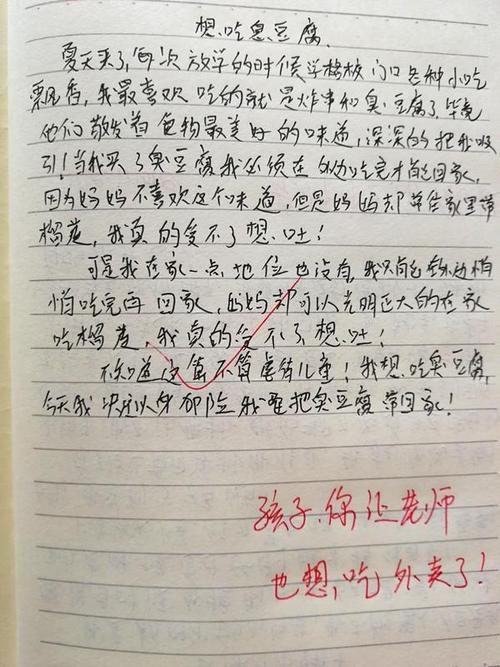 想吃臭豆腐.
夏天来了,每次放学的时候学校校门口各种小吃
飘香,我最喜欢吃的就是炸串和臭豆腐了,毕竟
他们散发着食物最美好的味道,深深的把我吸
引!当我买了臭豆腐我必须在外边吃完才能回家,
因为妈妈不喜欢这个味道,但是妈妈却往家里带
榴莲,我真的受不了想吐!
可是我在家一点地位也没有,我只能在外边悄
悄吃完再回家,妈妈却可以光明正大的在家
吃榴莲,我真的受不了,想吐!
不知道这算不算虐待儿童!我想吃臭豆腐,
今天我决定以身郤险我要把臭豆腐带回家!
孩子,你让老师
也想吃外卖了!